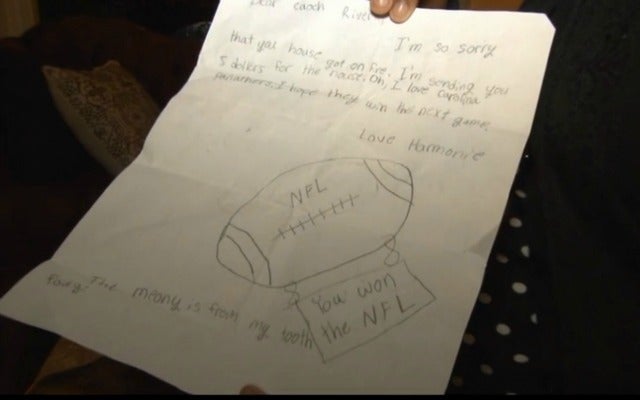 Dear caoch River
I'm so sorry
that you house got on fire. I'm sending you
5 dollers for the house. Oh, I love carolina
panthers. I hope they win the next game.
Love Harmonie
NFL
You won
the NFL
The meony is from my tooth